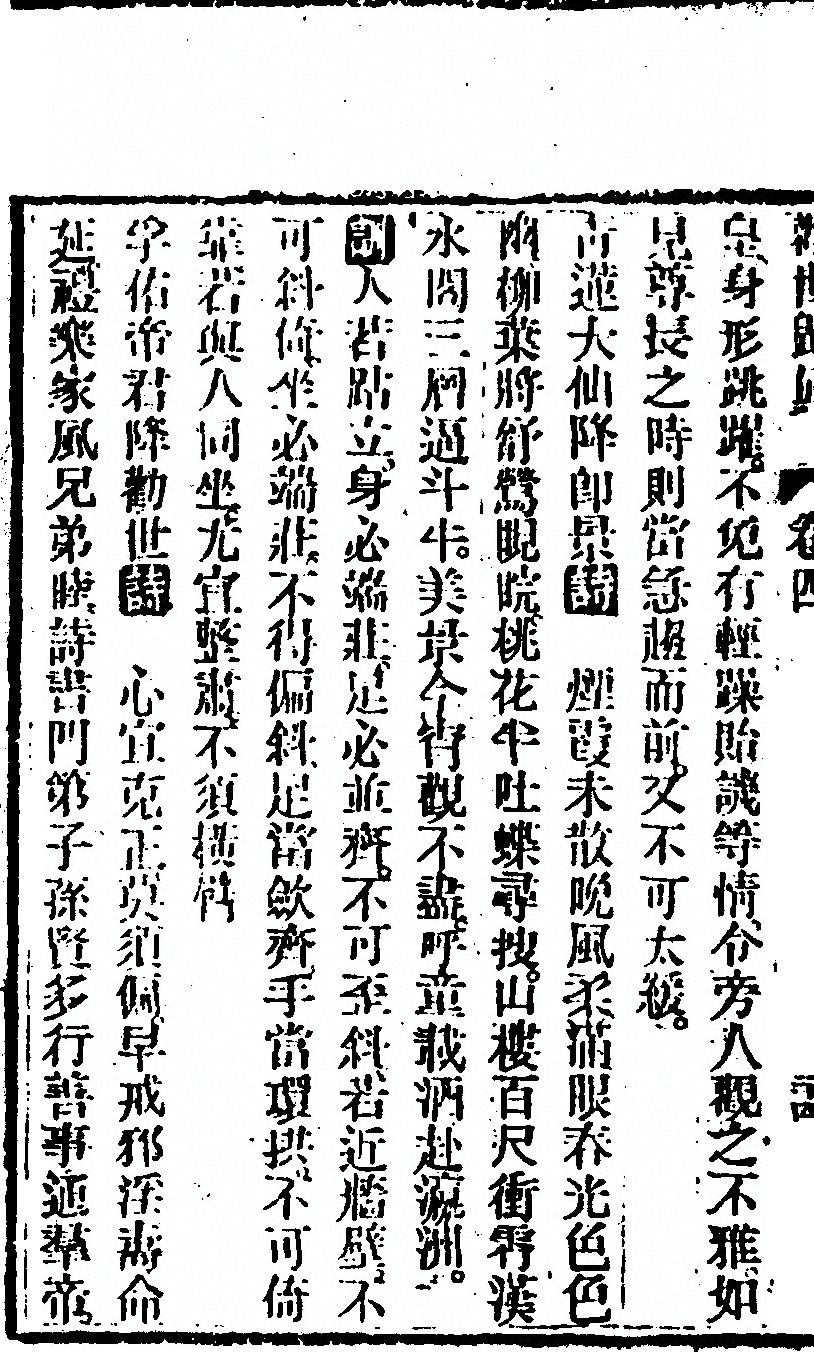 卷四
身形跳躍。不免有輕躁貽譏等情令旁人觀之不雅如
見尊長之時則當急趨而前又不可太緩。
青蓮大仙降 即景詩 煙霞未散晚風柔滿眼春光色色
幽柳葉將舒鶯睍睆桃花半吐蝶尋搜。山樓百尺衝霄漢
水閣三層逼斗牛。美景今宵觀不盡。呼童載酒赴瀛洲。
人若跕立。身必端莊。足必並齊。不可歪斜若近牆壁不
可斜倚坐必端莊。不得偏斜足當歛齊手當環拱不可倚
靠若與人同坐。尤宜整肅不須橫臂
孚佑帝君降 勸世詩 心宜克正莫須偏早戒邪淫壽命
延禮樂家風兄弟睦。詩書門第子孫賢多行善事通羣帝